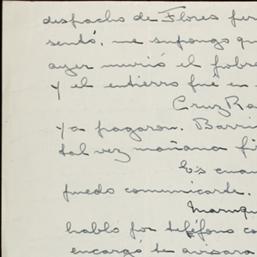 despacho de Flores fer
sentó, me supongo qu
ayer murió el pobre
y el entierro fué en
Cruz Ra
ya pagaron. Barri
tal vez mañana fi
Es cuan
puedo comunicarte.
habló por teléfono co
encargó te avisara